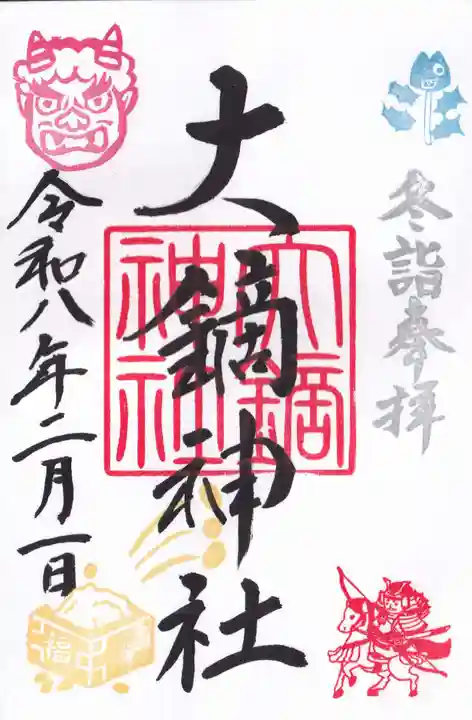 冬詣奉拝
大鏑神社
大鏑神社
令和八年二月一日
福